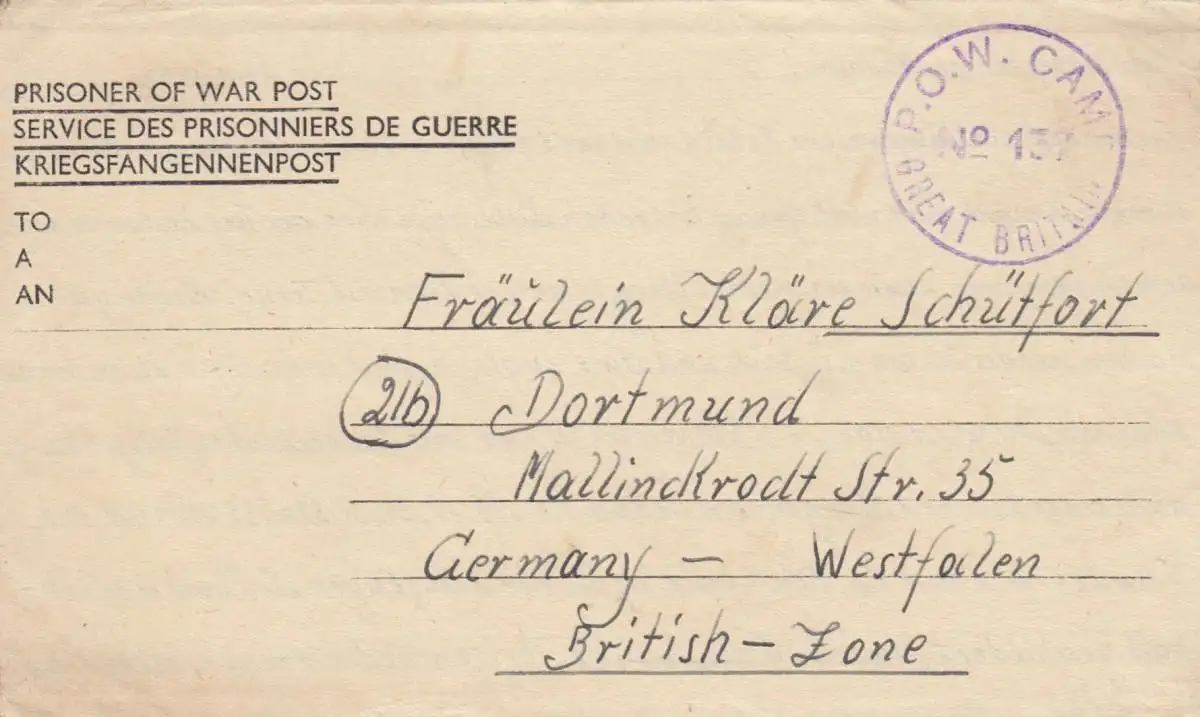 PRISONER OF WAR POST
SERVICE DES PRISONNIERS DE GUERRE
KRIEGSFANGENNENPOST
P.O.W. CAMP
No
GREAT BRITAIN
TO
A
AN
Fräulein Kläre Schütfort
21b Dortmund
Mallinckrodt Str. 35
Germany – Westfalen
British – Zone